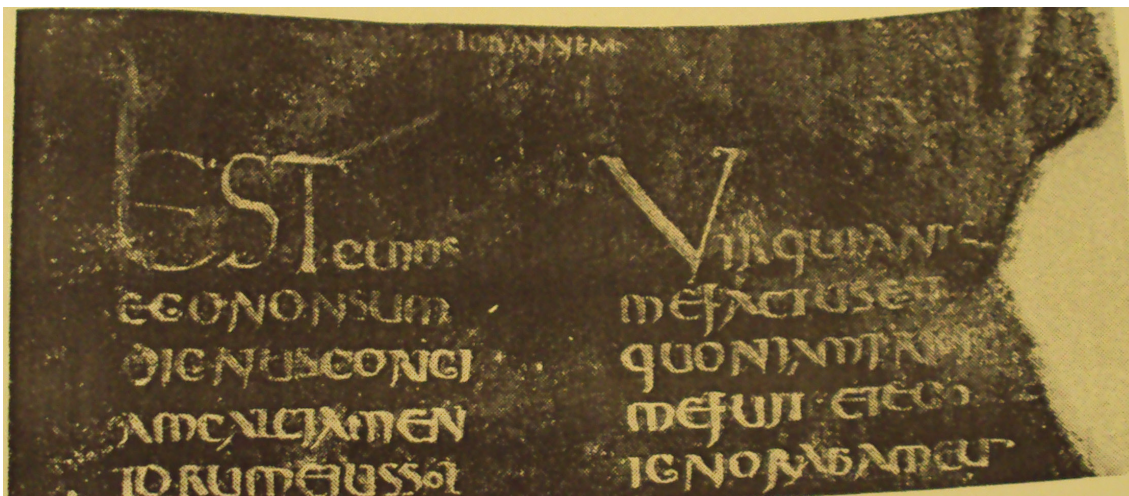 IOHANNEM
EST·CUIUS
EGONONSUM
DIGNUSCONGI
AMCALCIAMEN
TORUMEIUSSOL
VIRQUIANTE
MEFACTUSEST
QUONIAMPRIOR
MEFUIT·ETEGO
IGNORABAMEU